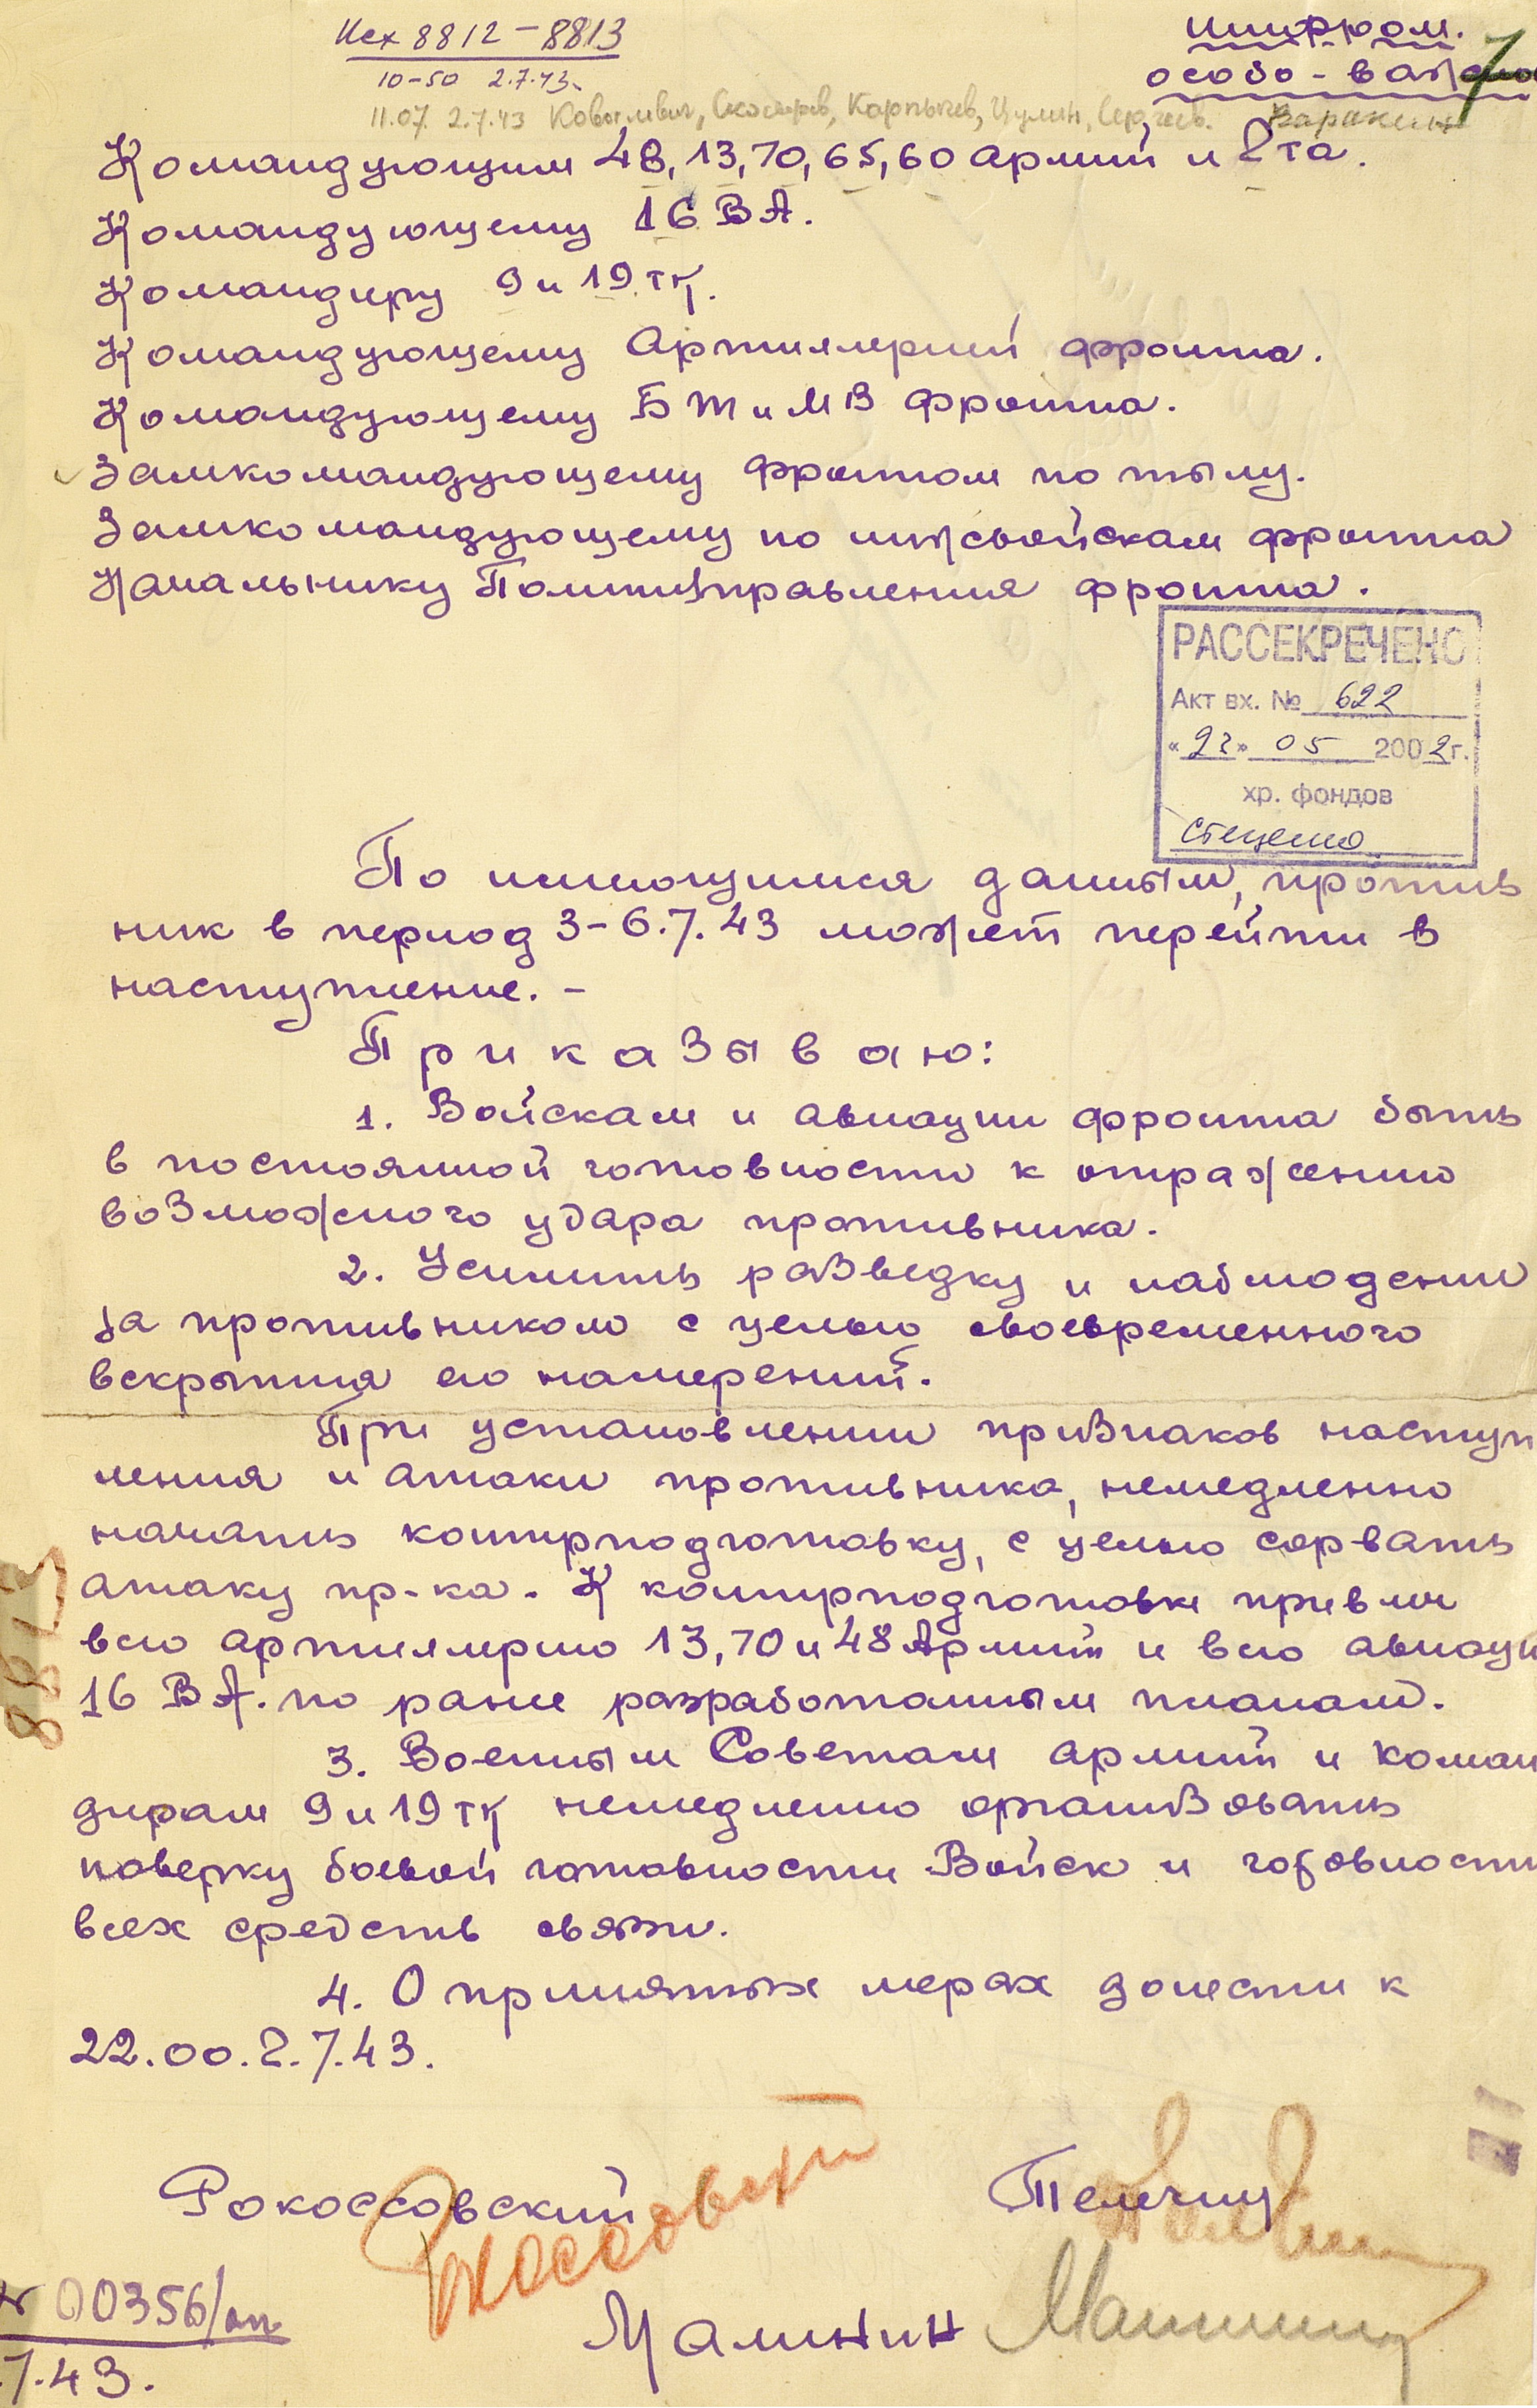 Исх 8812-8813
10-50 2.7.43.
шифром.
особо-важно
7
11.07 2.7.43
Командующим 48, 13, 70, 65, 60 армий и 2 та.
Командующему 16 ВА.
Командиру 9 и 19 тк.
Командующему Артиллерией фронта.
Командующему БТ и МВ фронта.
Замкомандующему фронтом по тылу.
Замкомандующему по инжвойскам фронта
Начальнику Политуправления фронта.
РАССЕКРЕЧЕНО
Акт вх. № 622
«22» 05 2002г.
хр. фондов
По имеющимся данным, против
ник в период 3-6.7.43 может перейти в
наступление. -
Приказываю:
1. Войскам и авиации фронта быть
в постоянной готовности к отражению
возможного удара противника.
2. Усилить разведку и наблюдение
за противником с целью своевременного
вскрытия его намерений.
При установлении признаков наступ
ления и атаки противника, немедленно
начать контрподготовку, с целью сорвать
атаку пр-ка. К контрподготовке привлеч
всю артиллерию 13, 70 и 48 Армий и всю авиаци
16 ВА. по ранее разработанным планам.
3. Военным Советам армий и коман
дирам 9 и 19 тк немедленно организовать
поверку боевой готовности Войск и готовности
всех средств связи.
4. О принятых мерах донести к
22.00. 2.7.43.
8813
Рокоссовский
Рокоссовский
Телегин
Малинин
Малинин
№ 00356/оп
.7.43.